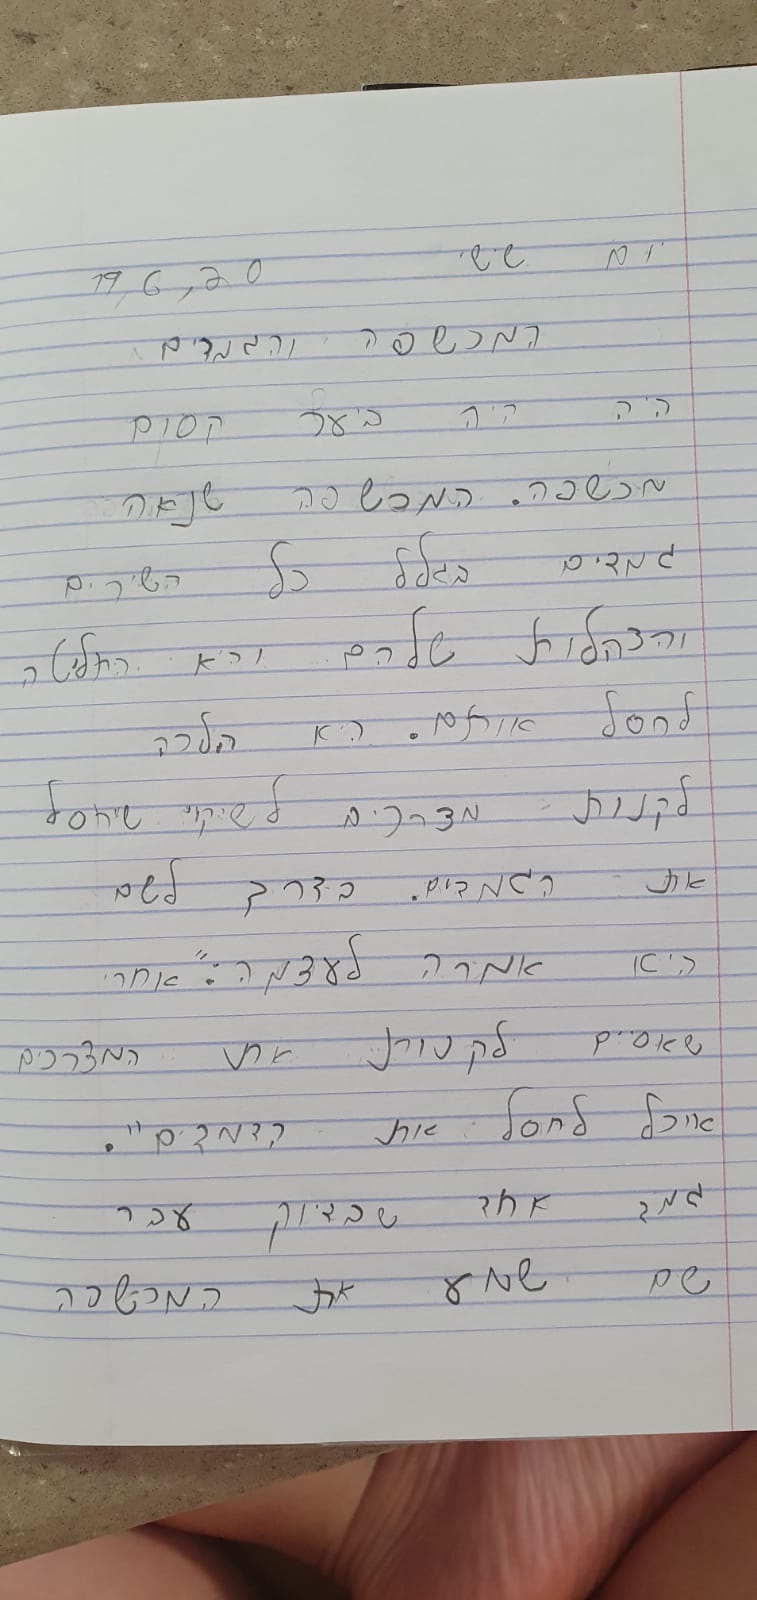 יום שישי 19,6,20
המכשפה והגמדים
היה היה ביער קסום
מכשפה. המכשפה שנאה
גמדים בגלל כל השירים
והצהלות שלהם והיא החליטה
לחסל אותם. היא הלכה
לקנות מצרכים לשיקוי שיחסל
את הגמדים. בדרך לשם
היא אמרה לעצמה: "אחרי
שאסיים לקנות את המצרכים
אוכל לחסל את הגמדים".
גמד אחד שבדיוק עבר
שם שמע את המכשפה